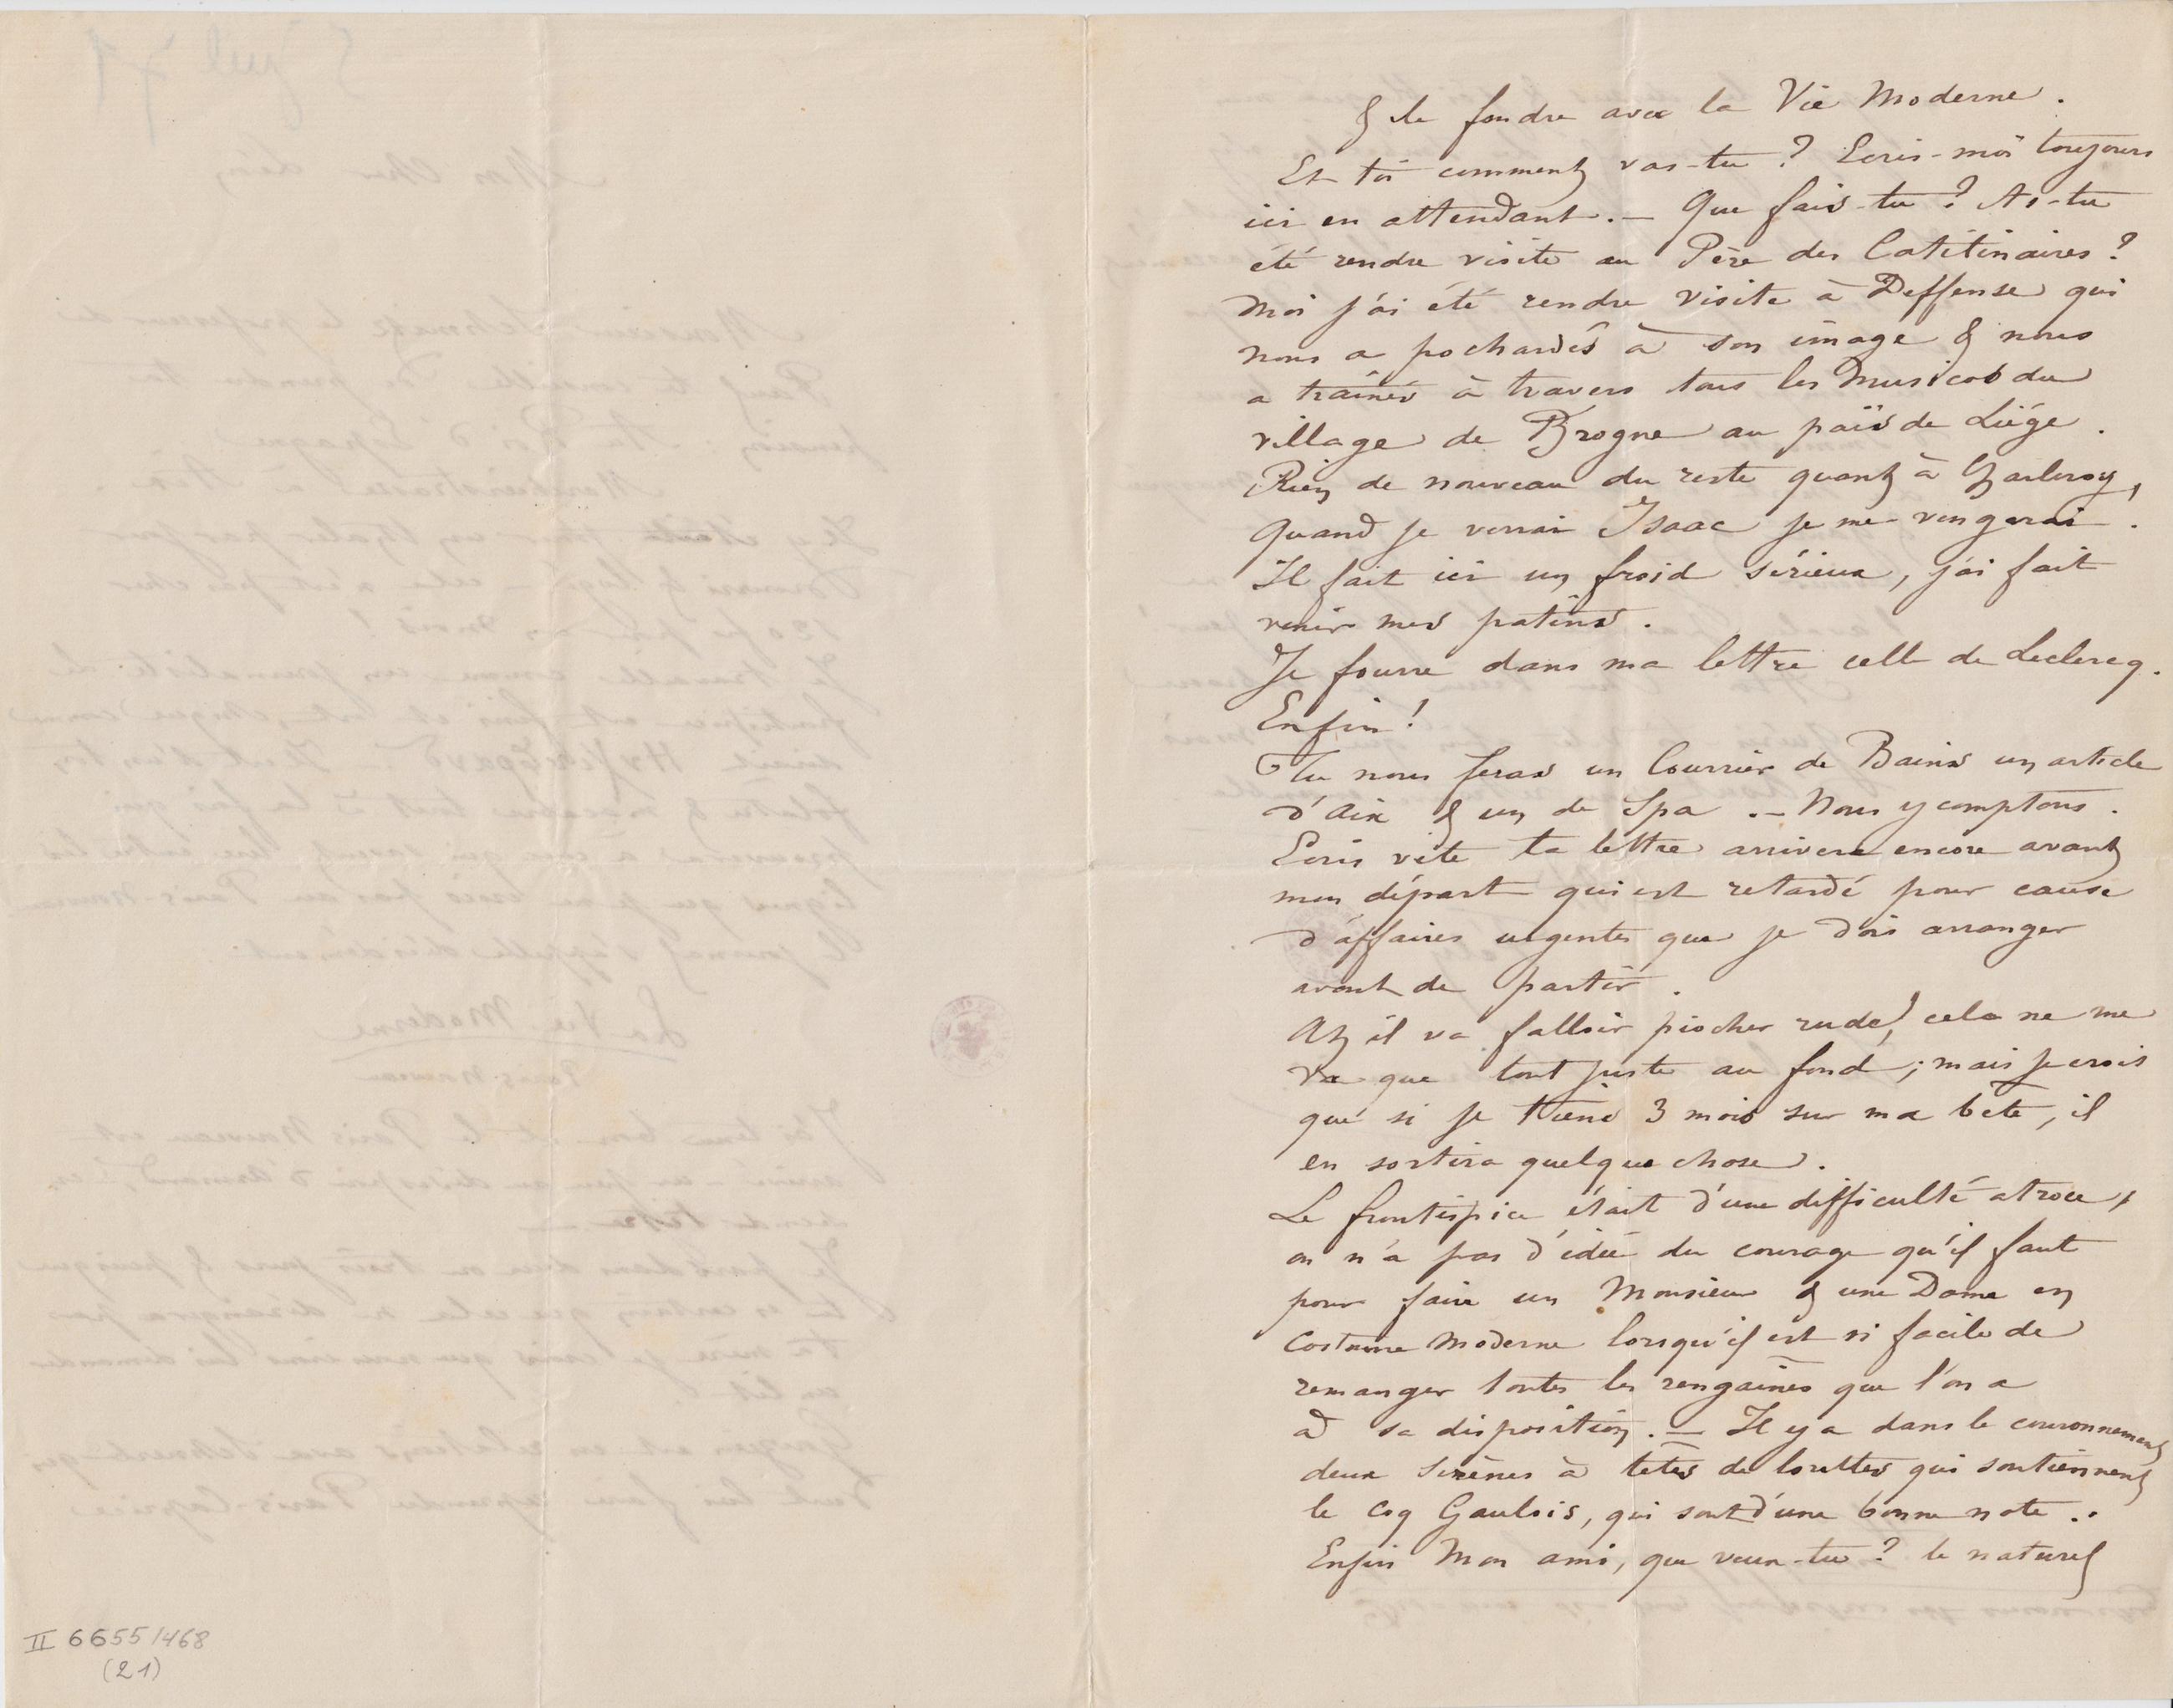 & le fondre avec la Vie Moderne.
Et toi comment vas-tu ? Ecris-moi toujours
ici en attendant. — Que fais-tu ? As-tu
été rendre visite au Père des Catitinaires ?
Moi j'ai été rendre visite à Deffense qui
nous a pochardés à son image & nous
a trainés à travers tous les Musicos du
village de Brogne au païs de Liége.
Rien de nouveau du reste quant à Charleroy,
quand je verrai Isaac je me vengerai.
Il fait ici un froid sérieux, j'ai fait
venir mes patins.
Je fourre dans ma lettre celle de Leclercq.
Enfin !
Tu nous feras un Courrier de Bains un article
d'Aix & un de Spa. — Nous y comptons.
Ecris vite ta lettre arrivera encore avant
mon départ qui est retardé pour cause
d'affaires urgentes que je dois arranger
avant de partir.
Ah il va falloir piocher rude, cela ne me
va que tout juste au fond ; mais je crois
que si je tiens 3 mois sur ma bête, il
en sortira quelque chose.
Le frontispice était d'une difficulté atroce,
on n'a pas d'idée du courage qu'il faut
pour faire un Monsieur & une Dame en
Costume Moderne lorsqu'il est si facile de
remanger toutes les rengaines que l'on a
à sa disposition. — Il y a dans le couronnement
deux Sirènes à têtes de lorettes qui soutiennent
le Coq Gaulois, qui sont d'une bonne note..
Enfin Mon ami, que veux-tu ? le naturel
II 6655/468
(21)